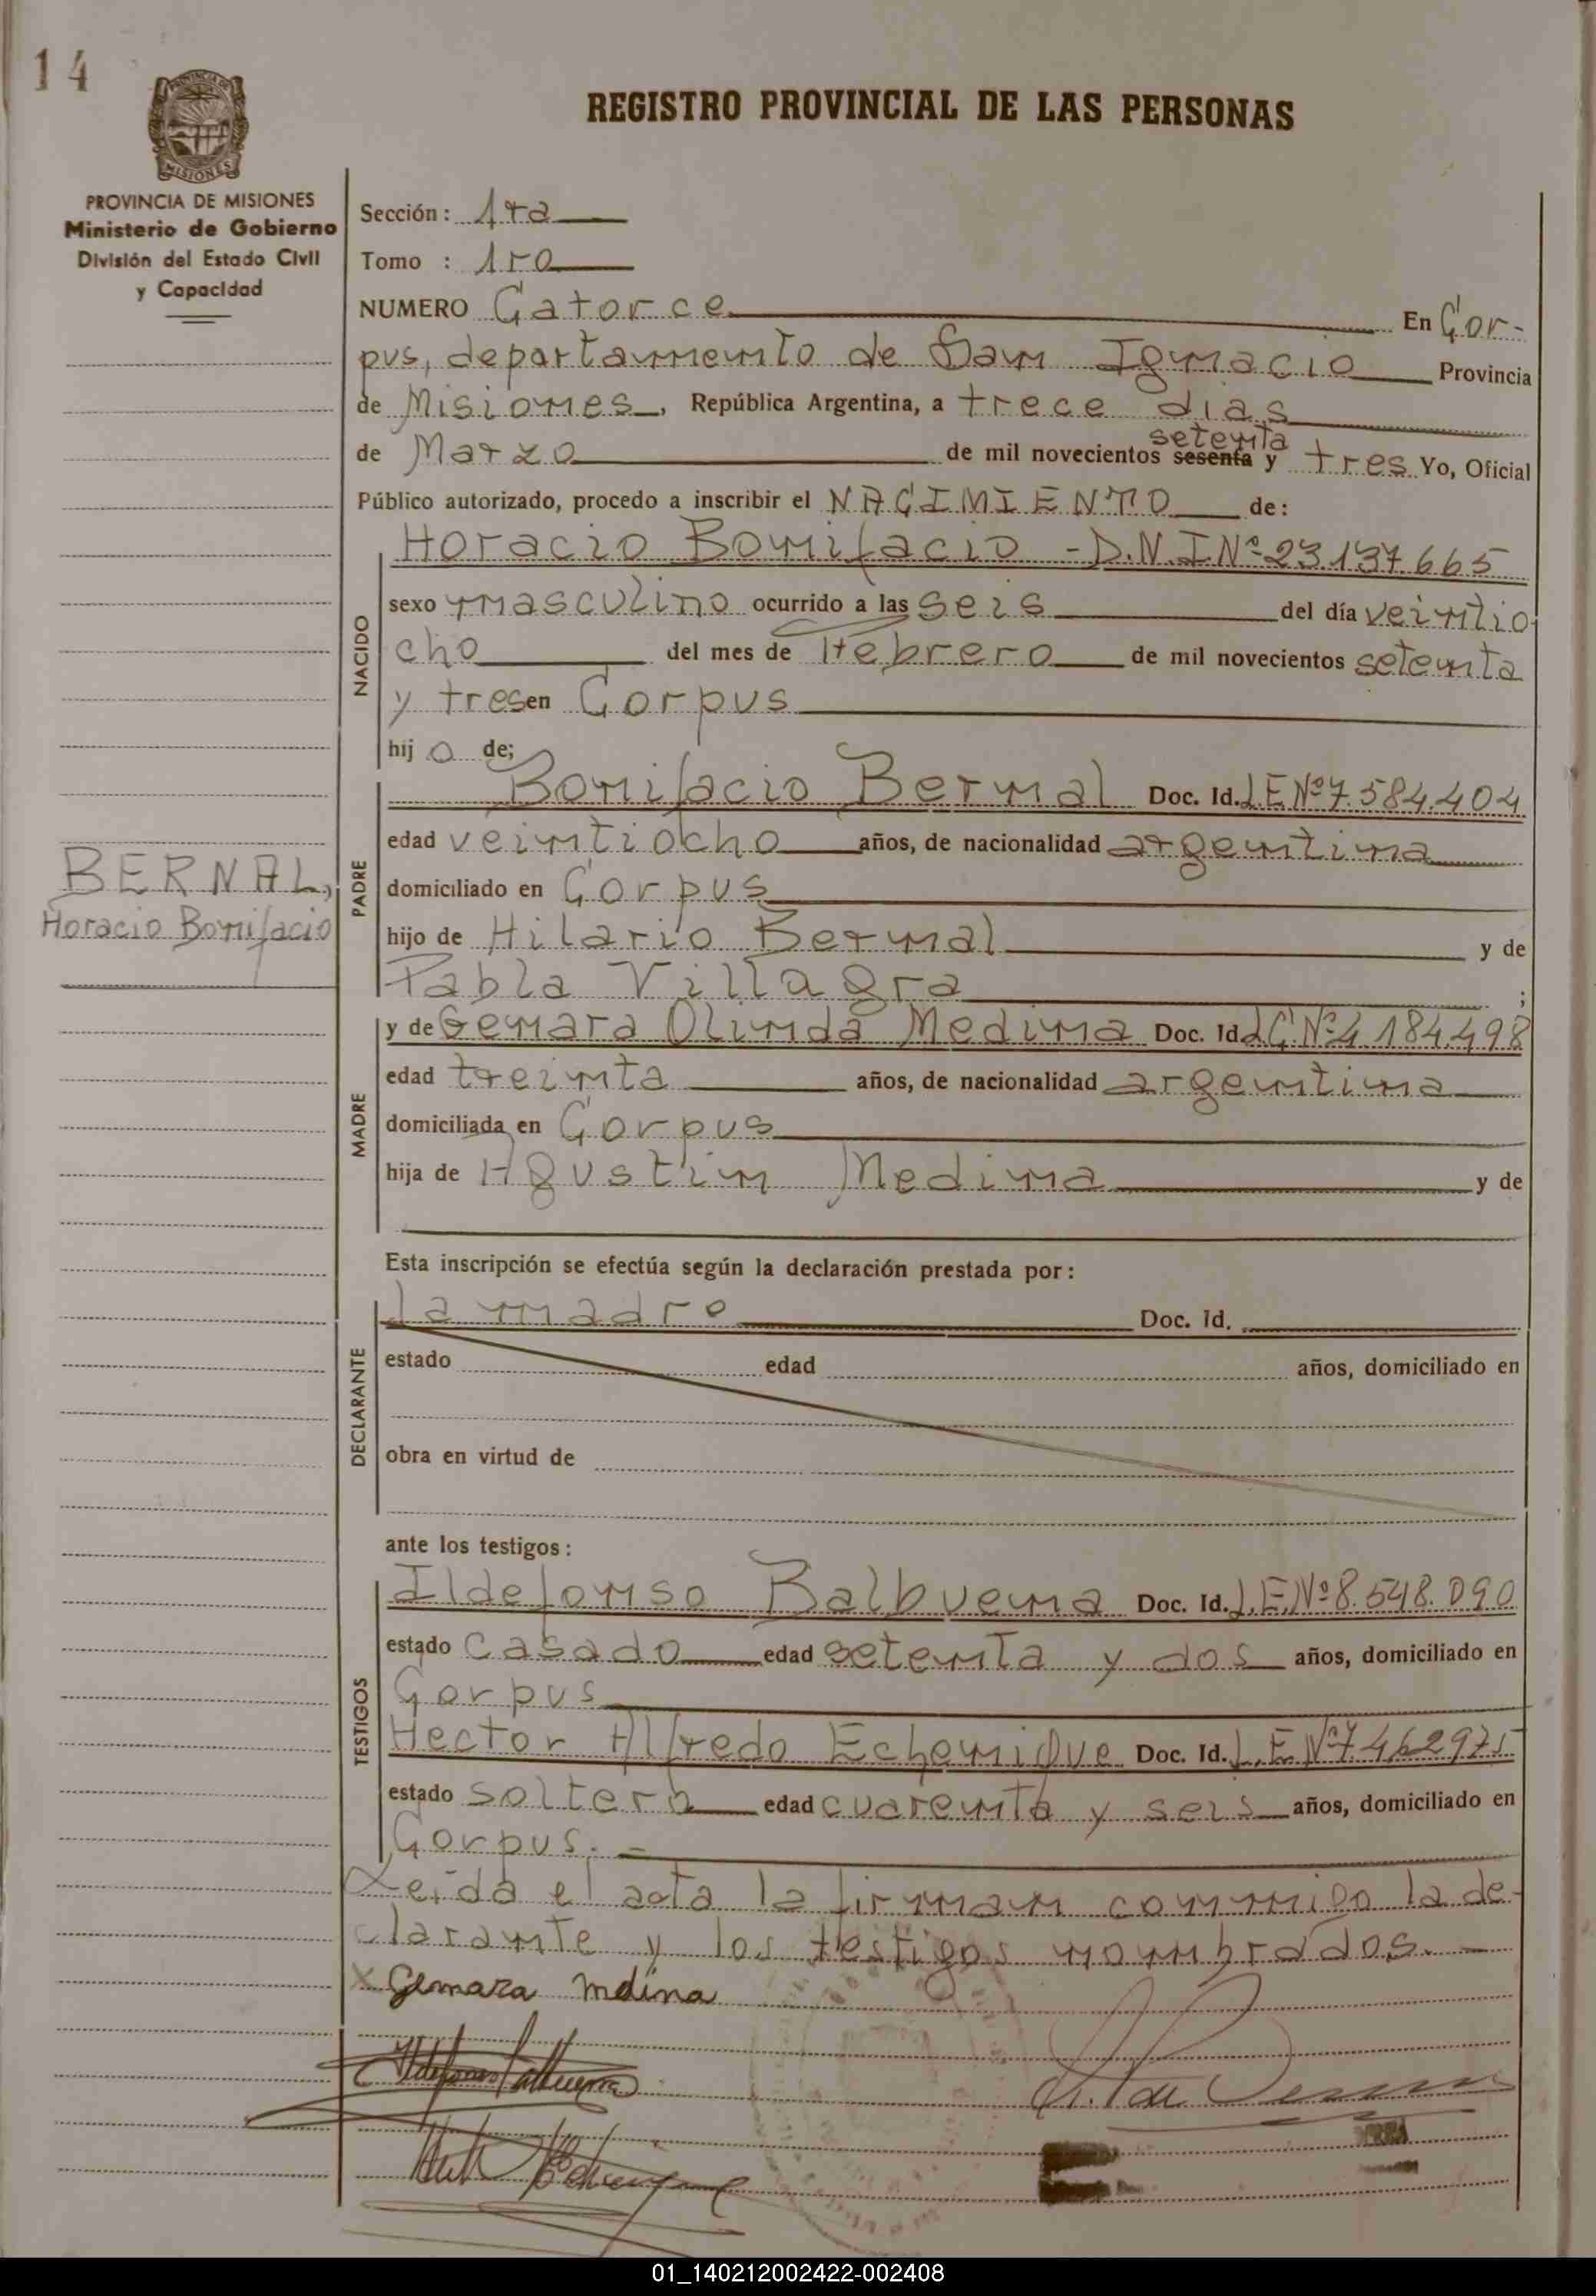 14
REGISTRO PROVINCIAL DE LAS PERSONAS
MISIONES
PROVINCIA DE MISIONES
Ministerio de Gobierno
División del Estado Civil
y Capacidad
Sección: 1ra
Tomo : 1ro
NUMERO Catorce En Cor-
pus, departamento de San Ignacio Provincia
de Misiones, República Argentina, a trece dias
de Marzo de mil novecientos sesenta setenta y tres Yo, Oficial
Público autorizado, procedo a inscribir el NACIMIENTO de:
NACIDO
Horacio Bonifacio - D.N.I Nº 23137.665
sexo masculino ocurrido a las seis del día veintio
cho del mes de Febrero de mil novecientos setenta
y tres en Corpus
hij o de;
PADRE
Bonifacio Bernal Doc. Id. L.E Nº 7.584.404
edad veintiocho años, de nacionalidad argentina
domiciliado en Corpus
BERNAL,
Horacio Bonifacio
hijo de Hilario Bernal y de
Pabla Villagra ;
MADRE
y de Genara Olinda Medina Doc. Id L.C. Nº 4.184.498
edad treinta años, de nacionalidad argentina
domiciliada en Corpus
hija de Agustin Medina y de
Esta inscripción se efectúa según la declaración prestada por:
DECLARANTE
La madre Doc. Id.
estado edad años, domiciliado en
obra en virtud de
ante los testigos:
TESTIGOS
Ildefonso Balbuena Doc. Id. L.E. Nº 8.548.090
estado casado edad setenta y dos años, domiciliado en
Corpus
Hector Alfredo Echenique Doc. Id. L.E. Nº 7.462975
estado soltero edad cuarenta y seis años, domiciliado en
Corpus. -
Leida el acta la firman conmigo la de-
clarante y los testigos nombrados. -
x Genara mdina
Ildefonso Balbuena
01_140212002422-002408